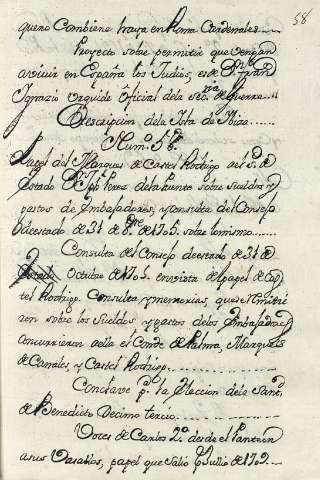 58
quero Combiene haya en Roma Cardenales
Proyecto sobre permitir que vengan
a vivir en España los Judios, es de Dn. Juan
Ignazio Urquide Oficial dela secria. de Guerra
Descripcion dela Isla de Ibiza
Num.o 56.
Papel del Marques de Castel Rodrigo al s.o de
Estado Dn. Jph Perez dela Puente sobre sueldos y
gastos de Embajadores, y consulta del Consejo
de estado de 31 de 8.bre de 1705. sobre lo mismo
Consulta del Consejo de estado de 31 de
Octubre de 1705. en vista del papel de Cas
tel Rodrigo. Consulta y memorias, que se remitie
ron sobre los Sueldos, y gastos delos Embajadores
Concurrieron a ella el Conde de Palma, Marqueses
de Canales, y Castel Rodrigo
Conclave p.a la Eleccion dela Sant.d
de Benedicto Decimo tercio
Voces de Carlos 2.o desde el Panteon
a sus Vasallos, papel que salio en Jullio de 17